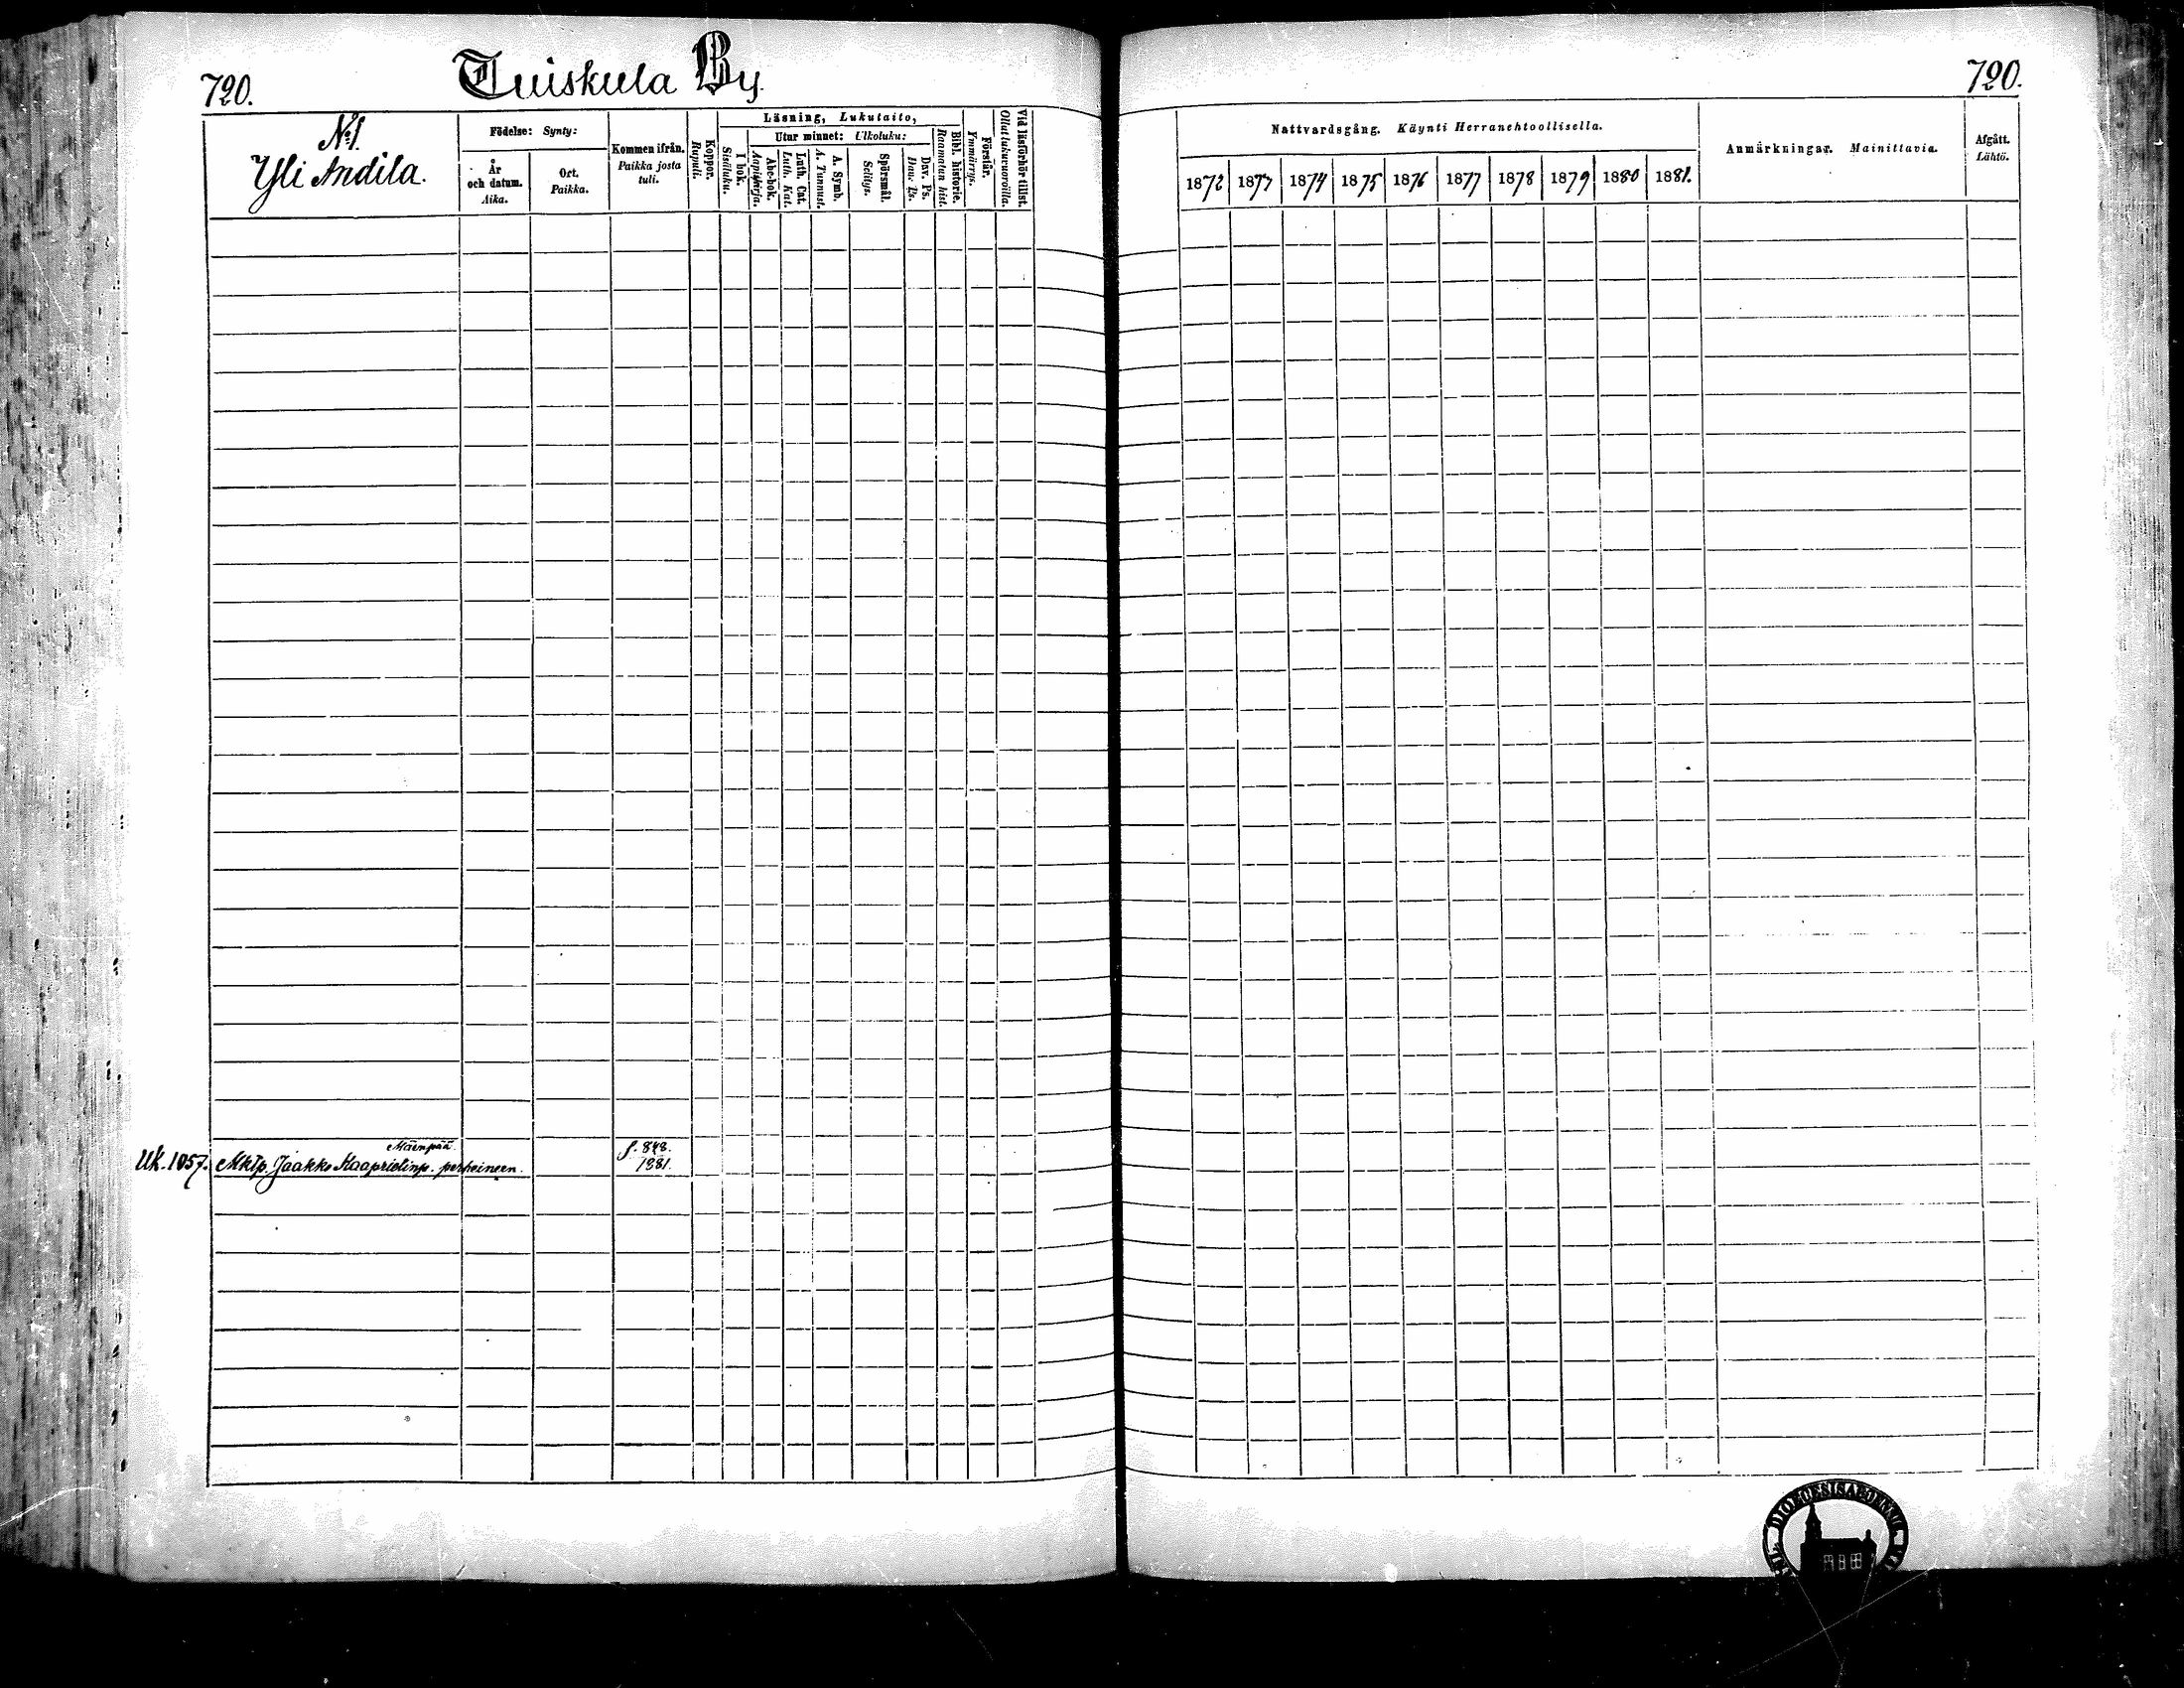 720.
Tuiskula By.
720.
N:o 1.
Yli Andila.
Födelse: Synty:
År och datum. Aika.
Ort. Paikka.
Kommen ifrån. Paikka josta tuli.
Koppor. Rupuli.
Läsning, Lukutaito,
I bok. Sisälluku.
Utur minnet: Ulkoluku:
Abc-bok. Aapiskirja.
Luth. Cat. Luth. Kat.
A. Symb. A. Tunnust.
Spörsmål. Selitys.
Dav. Ps. Dav. Ps.
Bibl. historie. Raamatun hist.
Förstår. Ymmärrys.
Vid läsförhör tillst. Ollut lukuvuoroilla.
Nattvardsgång. Käynti Herranehtoollisella.
1872 1873 1874 1875 1876 1877 1878 1879 1880 1881.
Anmärkningar. Mainittavia.
Afgått. Lähtö.
Mäenpää.
Uk. 1057. Mktp. Jaakko Kaaprielinp. perheineen.
s. 848.
1881.